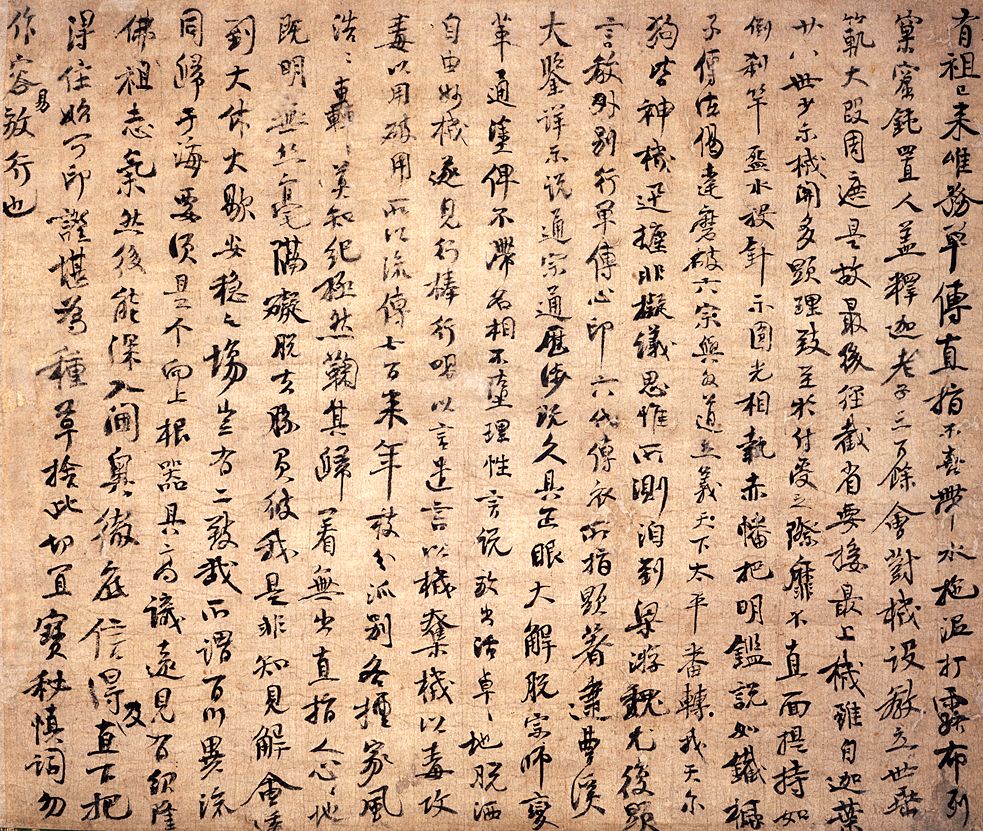 有祖已来唯務單傳直指不喜帶水拖泥打露布列
窠窟鈍置人蓋釋迦老子三百餘會對機設教立世垂
範大段周遮是故最後徑截省要接最上機雖自迦葉
廿八世少示機關多顯理致至於付受之際靡不直面提持如
倒刹竿盋水投針示圓光相執赤幡把明鑑說如鐵橛
子傳法偈達磨破六宗與外道立義天下太平番轉我天尔
狗皆神機迅捷非擬議思惟所測洎到梁游魏尤復顯
言教外別行單傳心印六代傳衣所指顯著逮曹溪
大鑒詳示說通宗通歷涉既久具正眼大解脫宗師變
革通塗俾不滯名相不墮理性言說放出活卓々地脫洒
自由妙機遂見行棒行喝以言遣言以機奪機以毒攻
毒以用破用所以流傳七百来年枝分派別各種家風
浩々轟々莫知紀極然鞠其歸著無出直指人心々地
既明無絲毫隔礙脫去勝負彼我是非知見解會透
到大休大歇安穩之場豈有二致哉所謂百川異流
同歸于海要須是个向上根器具高識遠見有紹隆
佛祖志氣然後能深入閫奧徹底信得及直下把
得住始可印證堪為種草捨此切宜寶秘慎詞勿
作容易放行也